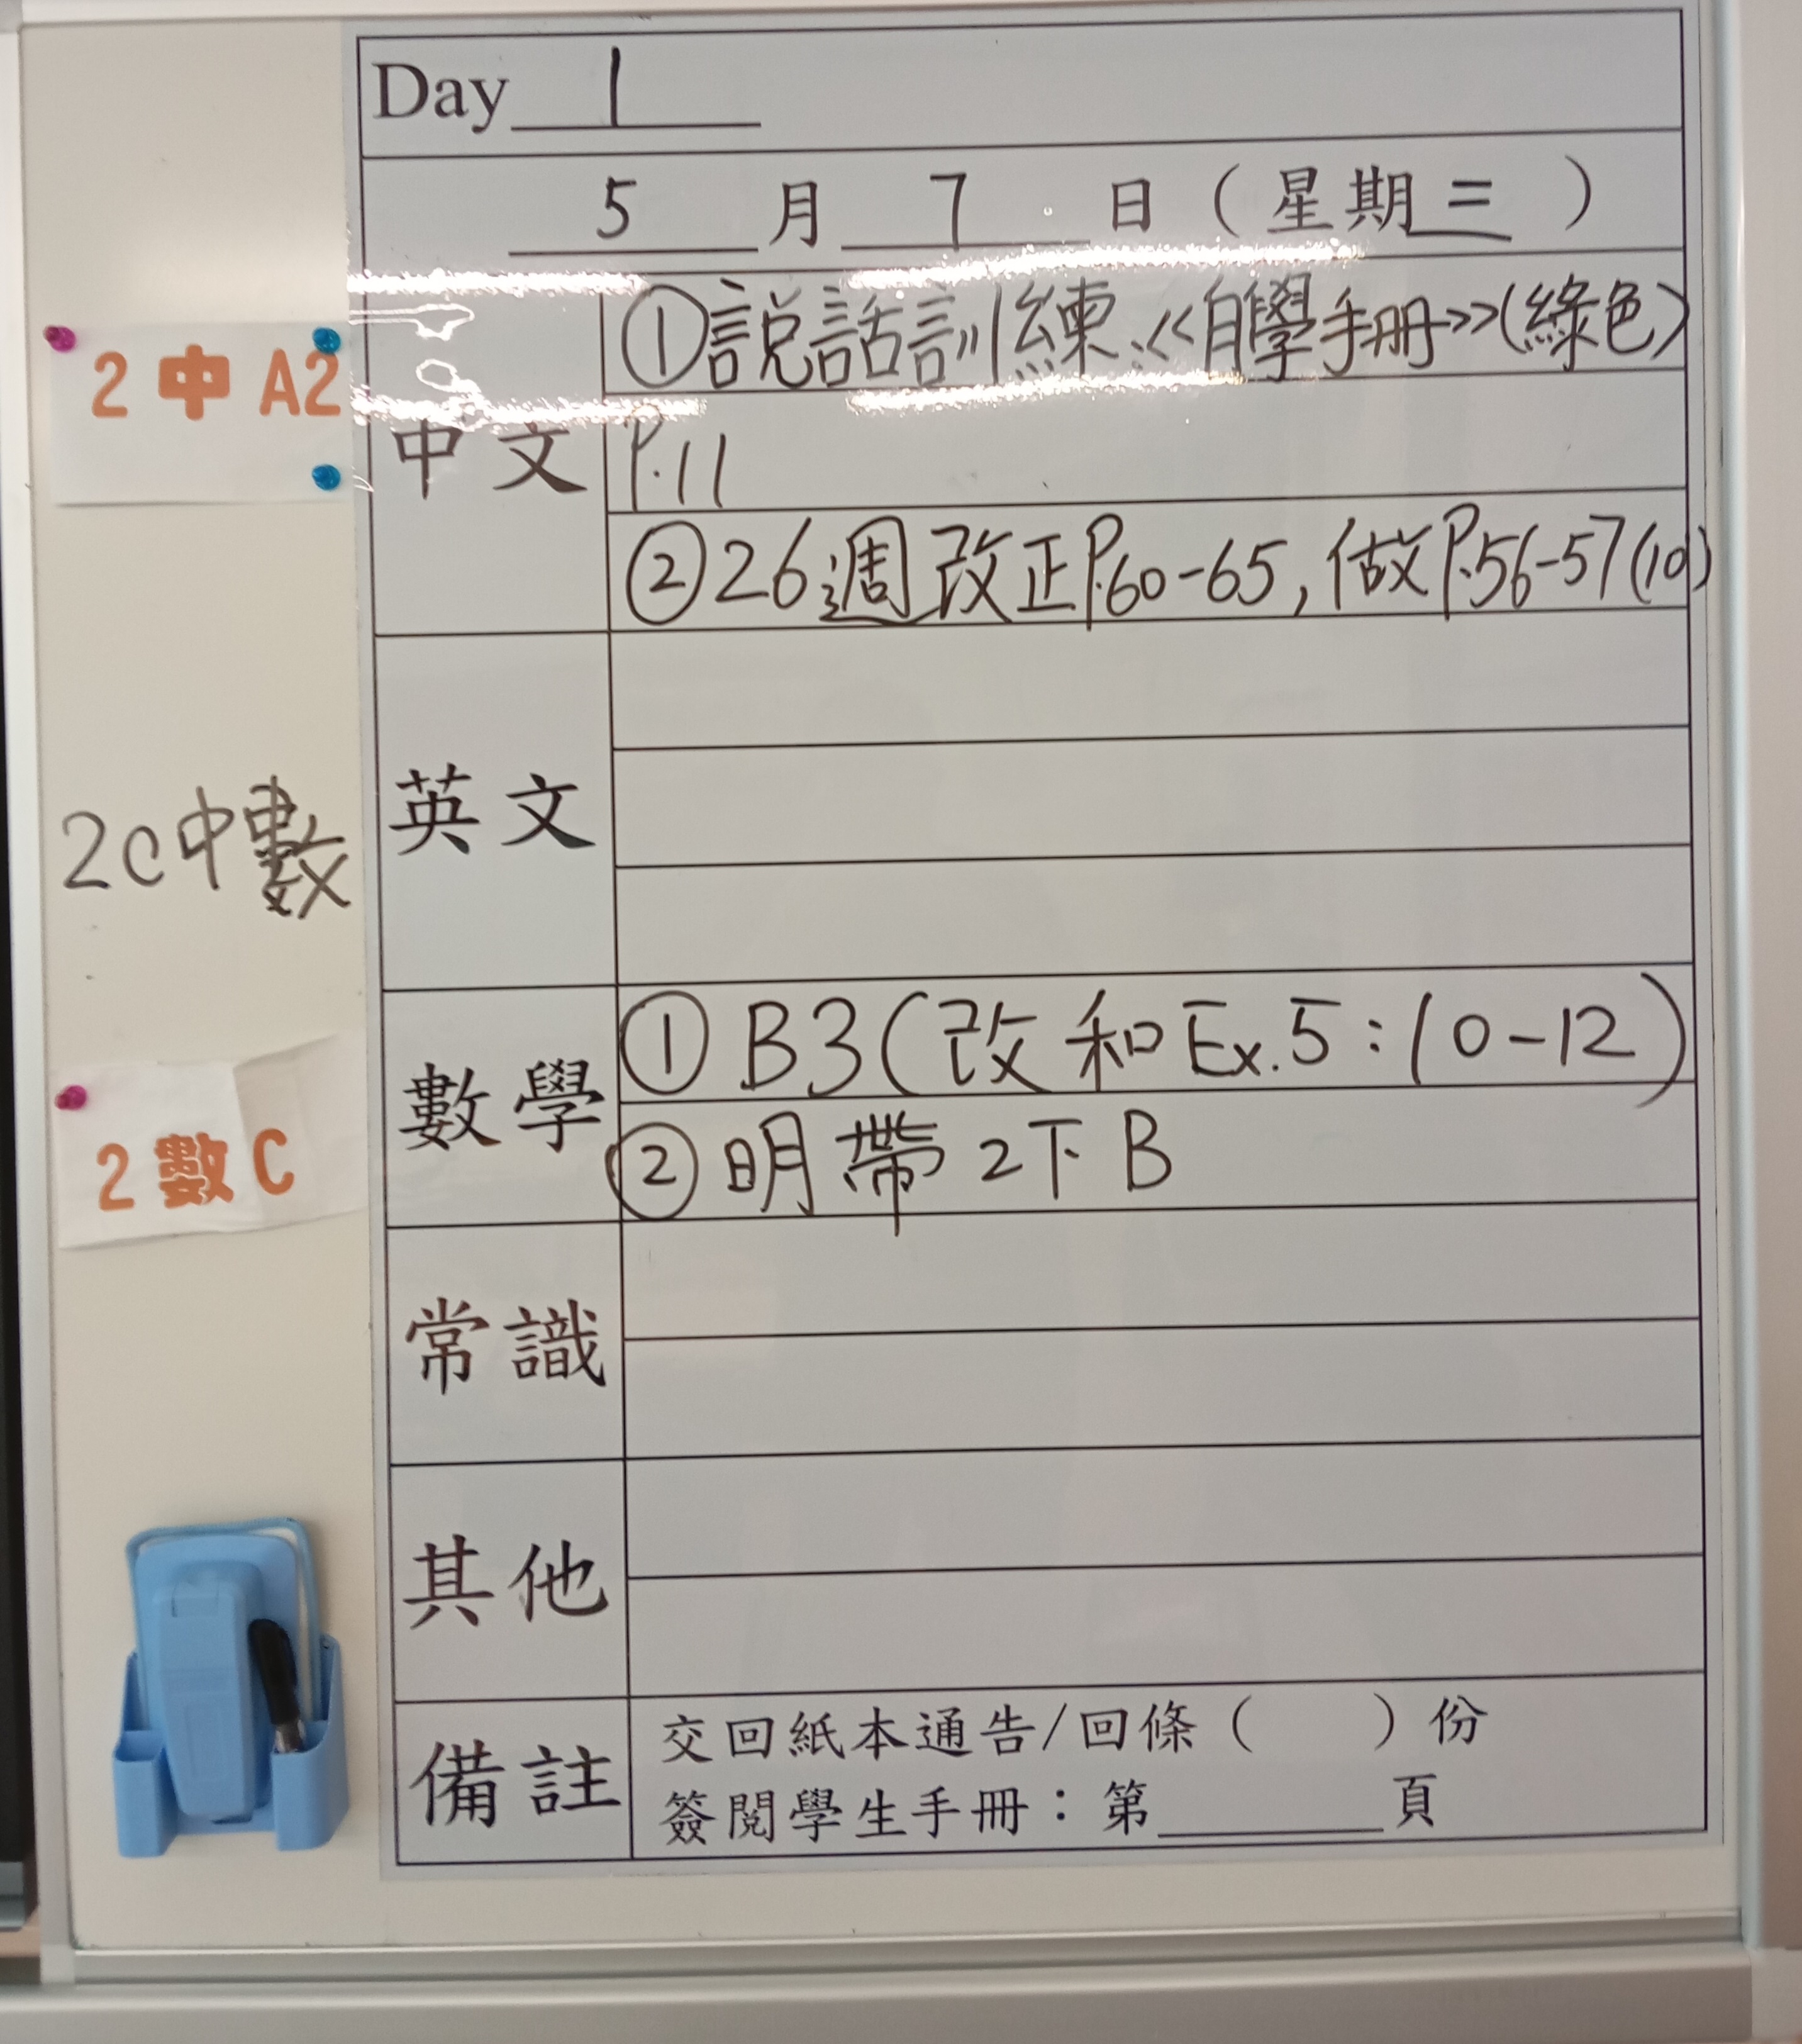 Day 1
5 月 7 日 ( 星期三 )
2 中 A2
中文
①說話訓練:《自學手册》(綠色)
P.11
②26週改正P.60-65,做P.56-57(10)
英文
2C中數
數學
① B3(改和Ex.5:10-12)
② 明帶2下B
2 數 C
常識
其他
備註
交回紙本通告/回條 ( ) 份
簽閱學生手冊:第 頁